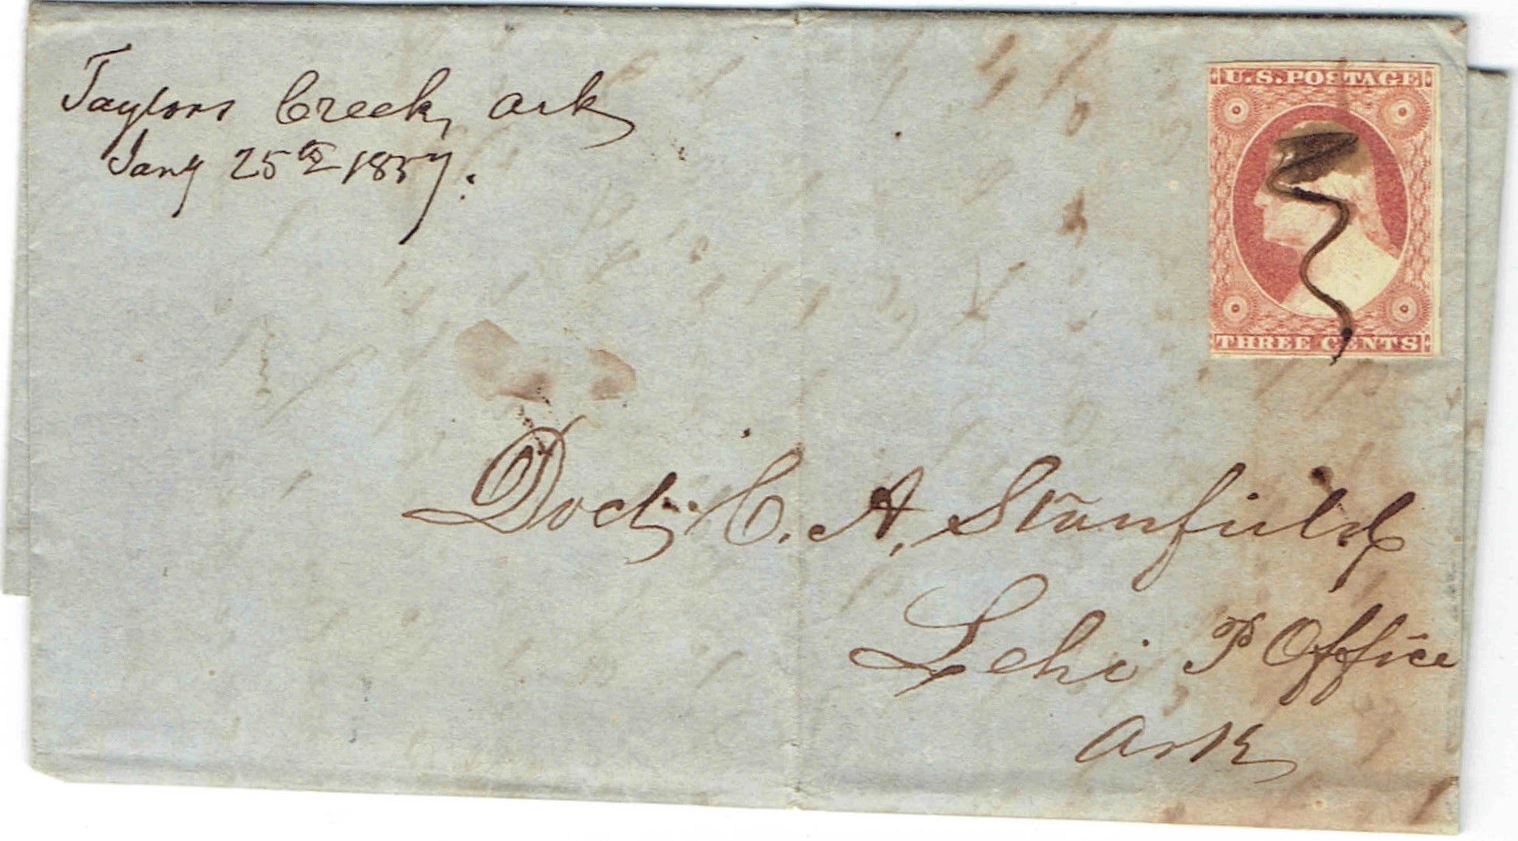 Taylors Creek, Ark
Jany 25th 1857.
U.S. POSTAGE
THREE CENTS
Doct. C. A. Stanfield
Lehi P Office
Ark